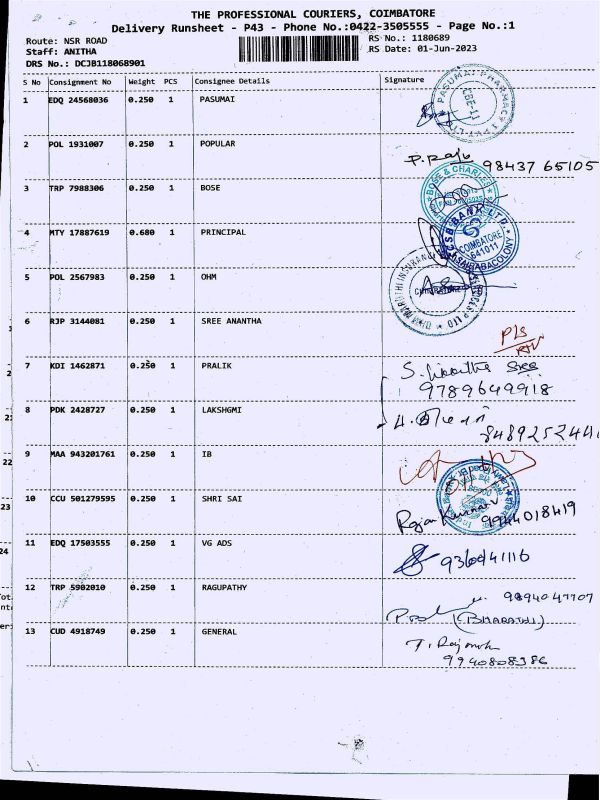 THE PROFESSIONAL COURIERS, COIMBATORE
Delivery Runsheet - P43 - Phone No.:0422-3505555 - Page No.:1
Route: NSR ROAD RS No.: 1180689
Staff: ANITHA RS Date: 01-Jun-2023
DRS No.: DCJB118068901
S No Consignment No Weight PCS Consignee Details Signature
1 EDQ 24568036 0.250 1 PASUMAI
PASUMAI PHARMACY
CBE-11
2 POL 1931007 0.250 1 POPULAR
P. Raju 98437 65105
3 TRP 7988306 0.250 1 BOSE
BOSE &
4 MTY 17887619 0.680 1 PRINCIPAL
CSB BANK LTD.
COIMBATORE
641011
5 POL 2567983 0.250 1 OHM
6 RJP 3144081 0.250 1 SREE ANANTHA
7 KDI 1462871 0.250 1 PRALIK
Sree
9789649918
8 PDK 2428727 0.250 1 LAKSHGMI
9 MAA 943201761 0.250 1 IB
10 CCU 501279595 0.250 1 SHRI SAI
9944018419
11 EDQ 17503555 0.250 1 VG ADS
12 TRP 5902010 0.250 1 RAGUPATHY
(BHARATHI)
13 CUD 4918749 0.250 1 GENERAL
9940808386